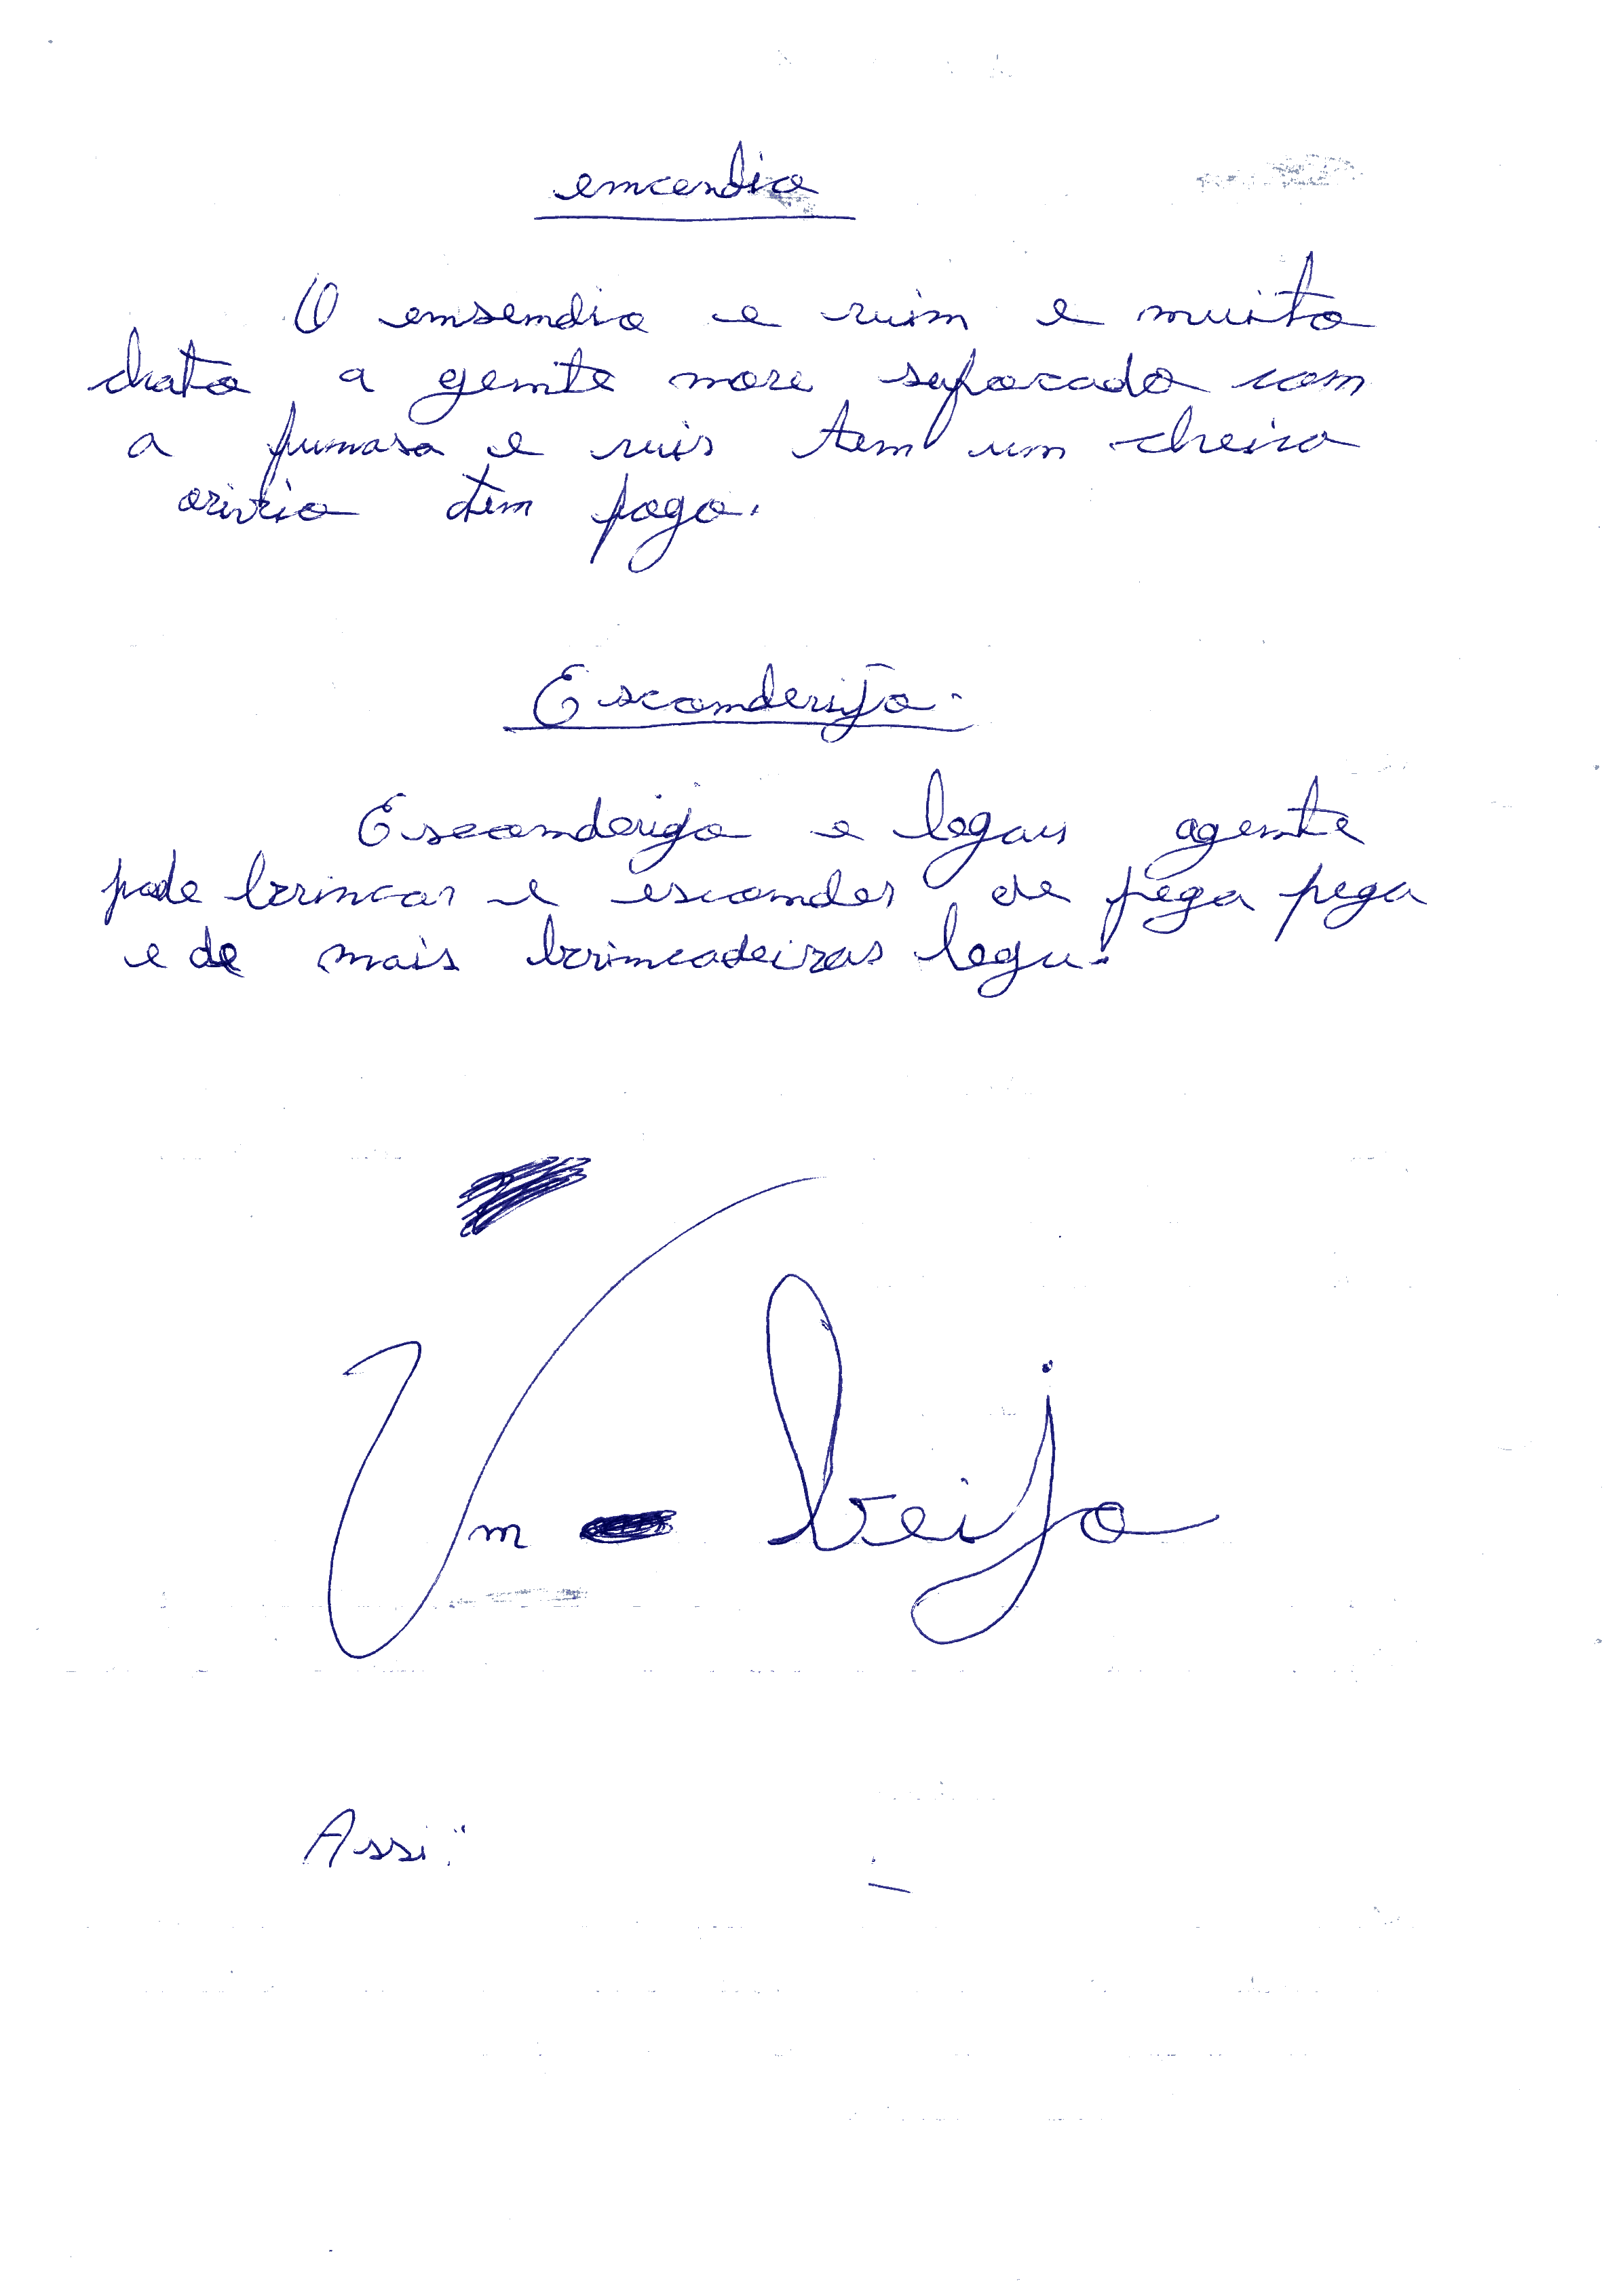 emcendio
O emsendio e ruim e muito
chato a gemte more sufocado com
a fumasa e ruis tem um cheiro
orivrio tem fogo.
Esconderijo.
Esconderijo e legaus agemte
pode brincar e esconder de pega pega
e de mais brimcadeiras legu.
Um beijo
Assi: